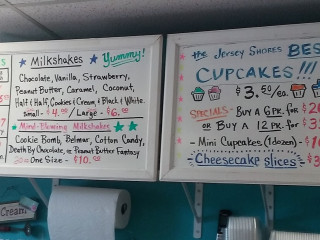 * Milkshakes * Yummy!
Chocolate, Vanilla, Strawberry,
Peanut Butter, Caramel, Coconut,
Half & Half, Cookies & Cream, & Black & White.
small - 4.00 / Large - $6.00
Mind-Blowing Milkshakes
Cookie Bomb, Belmar, Cotton Candy,
Death By Chocolate, or Peanut Butter Fantasy
One Size - $10.00
the Jersey Shores BES
CUPCAKES!!!
$3.50/ea.
SPECIALS - BUY A 6 PK. for $
OR BUY A 12 PK. for $3
- Mini Cupcakes (1 dozen) - $1
Cheesecake slices $
Cream